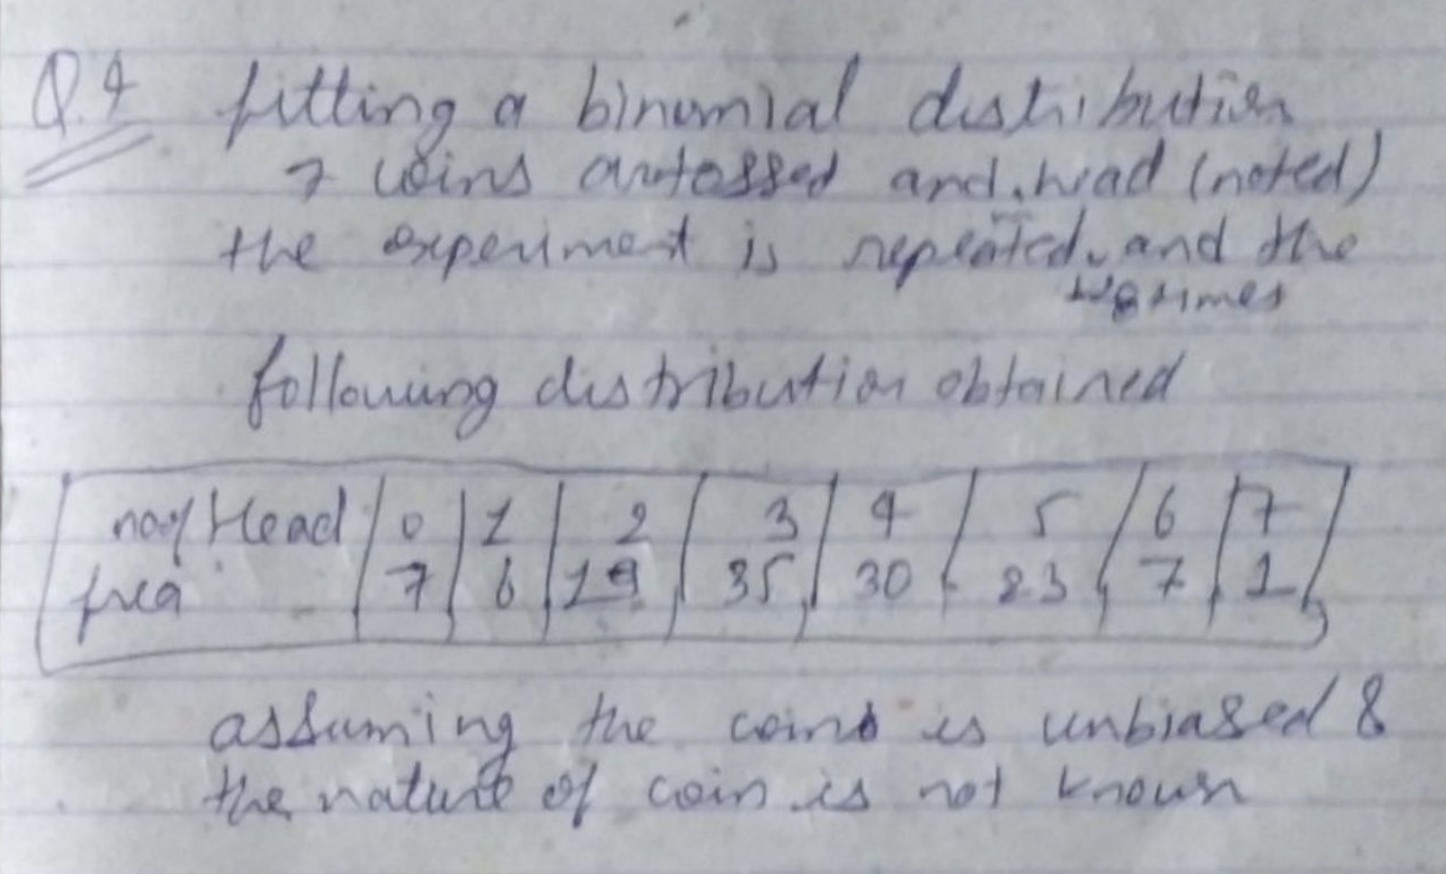 Q.4 fitting a binomial distribution
7 coins are tossed and head (noted)
the experiment is repeated and the
128 times
following distribution obtained
no of Head 0 1 2 3 4 5 6 7
freq 7 6 19 35 30 23 7 1
assuming the coins is unbiased &
the nature of coin is not known